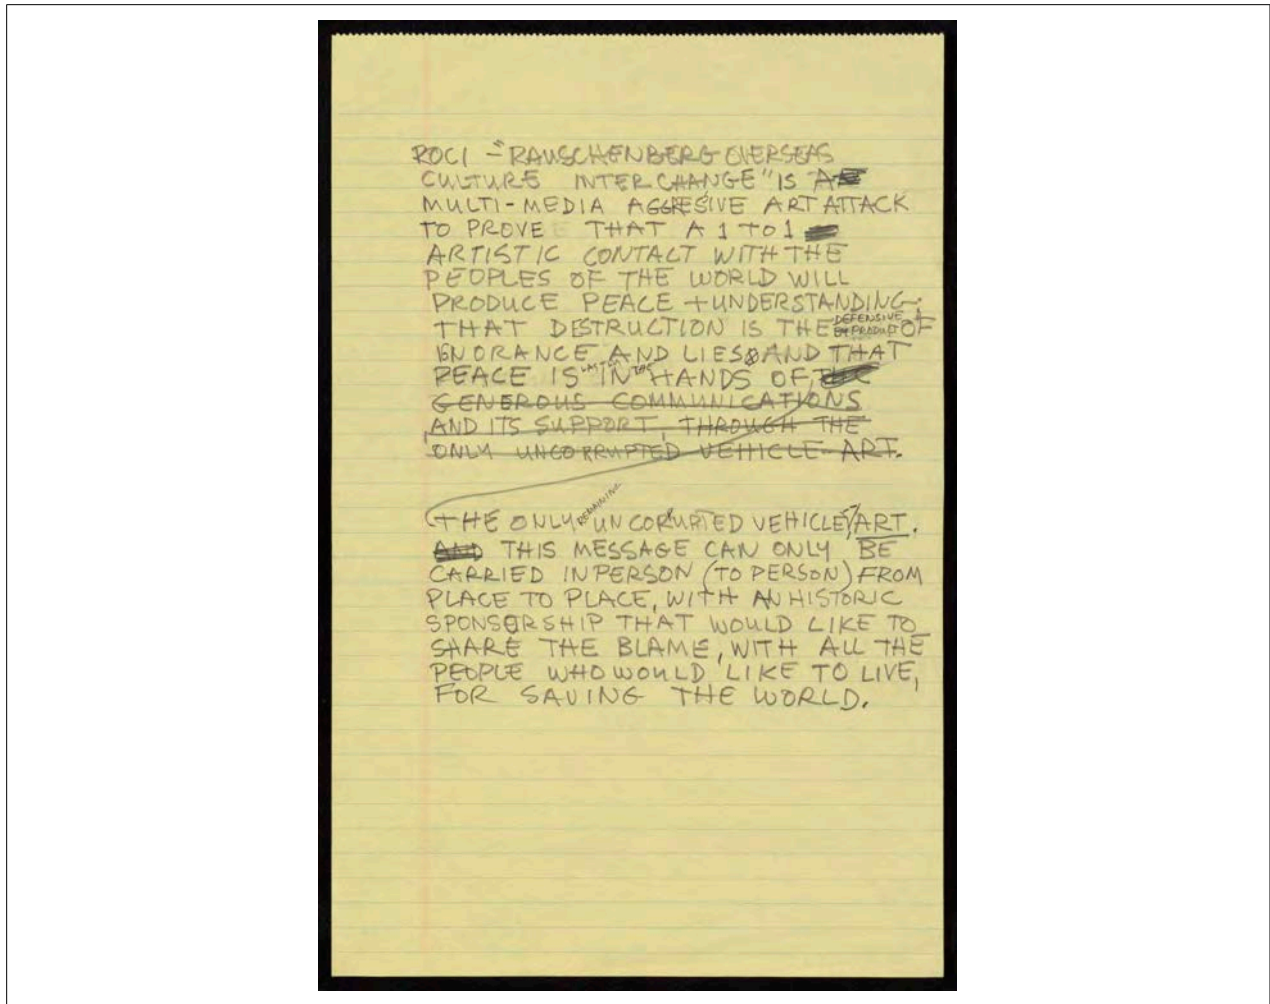 ROCI - "RAUSCHENBERG OVERSEAS
CULTURE INTERCHANGE" IS A
MULTI-MEDIA AGGRESIVE ART ATTACK
TO PROVE THAT A 1 TO 1
ARTISTIC CONTACT WITH THE
PEOPLES OF THE WORLD WILL
PRODUCE PEACE + UNDERSTANDING.
THAT DESTRUCTION IS THE DEFENSIVE BYPRODUCT OF
IGNORANCE AND LIES & AND THAT
PEACE IS IN THE HANDS OF
GENEROUS COMMUNICATIONS
AND ITS SUPPORT, THROUGH THE
ONLY UNCORRUPTED VEHICLE - ART.
THE ONLY REMAINING UNCORRUPTED VEHICLE, ART.
AND THIS MESSAGE CAN ONLY BE
CARRIED IN PERSON (TO PERSON) FROM
PLACE TO PLACE, WITH AN HISTORIC
SPONSORSHIP THAT WOULD LIKE TO
SHARE THE BLAME, WITH ALL THE
PEOPLE WHO WOULD LIKE TO LIVE,
FOR SAVING THE WORLD.